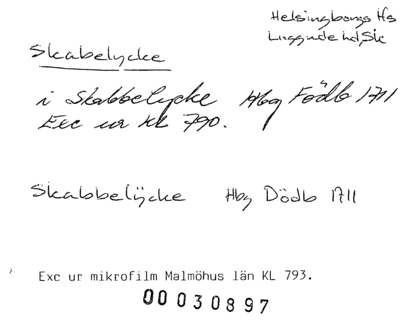 Helsingborgs Hs
Luggude hd, Sk
Skabelycke
i Skabbelycke Hbg Födb 1711
Exc ur KL 790.
Skabbelÿcke Hbg Dödb 1711
Exc ur mikrofilm Malmöhus län KL 793.
00 030897